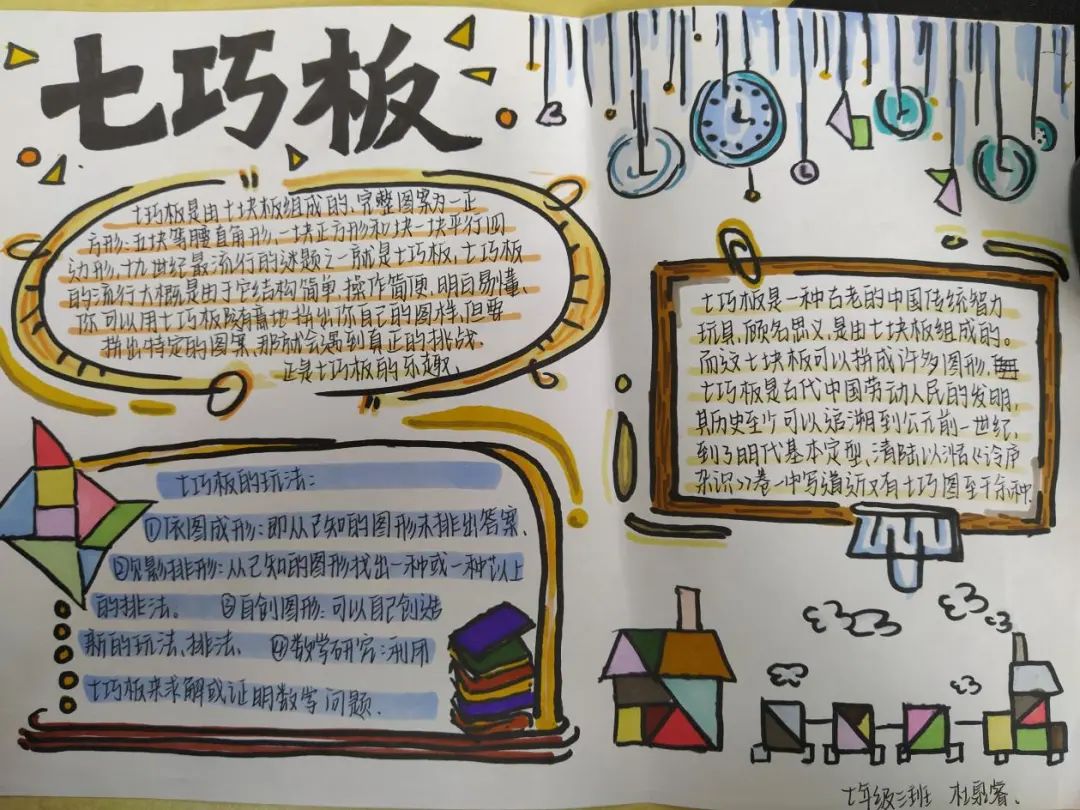 七巧板
七巧板是由七块板组成的,完整图案为一正
方形:五块等腰直角形、一块正方形和块一块平行四
边形,十九世纪最流行的谜题之一就是七巧板,七巧板
的流行大概是由于它结构简单、操作简便、明白易懂、
你可以用七巧板随意地拼出你自己的图样,但要
拼出特定的图案,那就会遇到真正的挑战.
正是七巧板的乐趣、
七巧板的玩法:
①依图成形:即从已知的图形来排出答案、
②见影排形:从已知的图形找出一种或一种以上
的排法。 ③自创图形:可以自己创造
新的玩法、排法、 ④数学研究:利用
七巧板来求解或证明数学问题.
七巧板是一种古老的中国传统智力
玩具,顾名思义,是由七块板组成的。
而这七块板可以拼成许多图形,
七巧板是古代中国劳动人民的发明,
其历史至少可以追溯到公元前一世纪,
到了明代基本定型、清陆以湉《冷庐
杂识》卷一中写道近又有七巧图至千余种.
七年级三班 杜